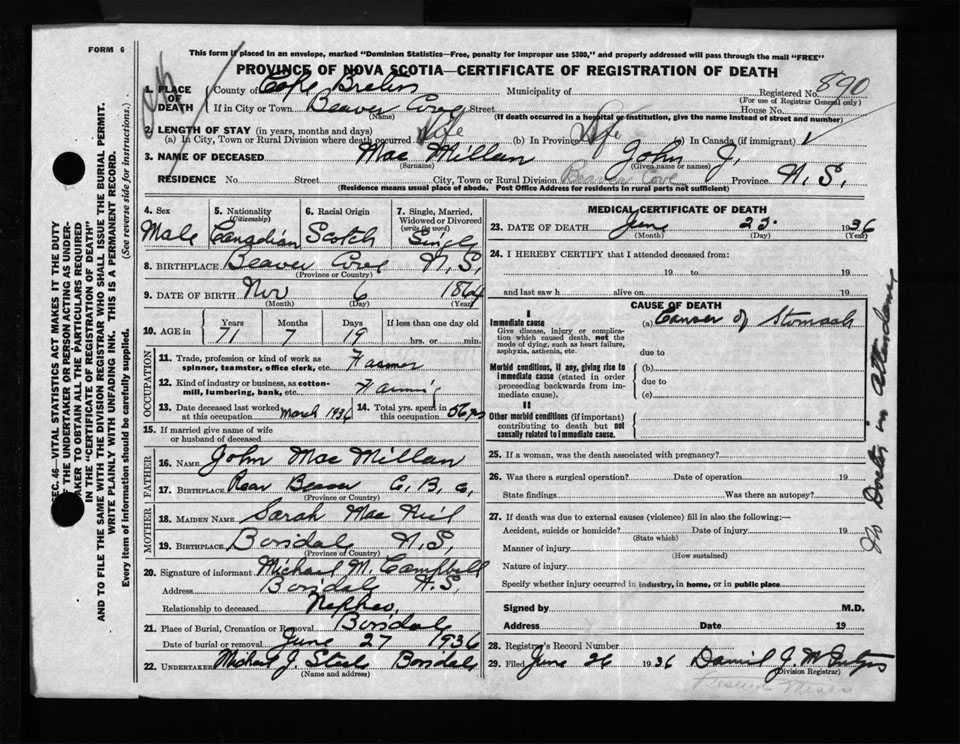 FORM 6
This form if placed in an envelope, marked "Dominion Statistics—Free, penalty for improper use $300," and properly addressed will pass through the mail "FREE"
PROVINCE OF NOVA SCOTIA—CERTIFICATE OF REGISTRATION OF DEATH
1. PLACE OF DEATH County of Cape Breton Municipality of Registered No. 890
(For use of Registrar General only)
If in City or Town Beaver Cove Street House No.
(Name) (If death occurred in a hospital or institution, give the name instead of street and number)
2. LENGTH OF STAY (in years, months and days)
(a) In City, Town or Rural Division where death occurred Life (b) In Province Life (c) In Canada (if immigrant)
3. NAME OF DECEASED Mac Millan John J.
(Surname) (Given name or names)
RESIDENCE No. Street City, Town or Rural Division Beaver Cove Province N.S.
(Residence means usual place of abode. Post Office Address for residents in rural parts not sufficient)
SEC. 46—VITAL STATISTICS ACT MAKES IT THE DUTY
OF THE UNDERTAKER OR PERSON ACTING AS UNDER-
TAKER TO OBTAIN ALL THE PARTICULARS REQUIRED
IN THE "CERTIFICATE OF REGISTRATION OF DEATH"
AND TO FILE THE SAME WITH THE DIVISION REGISTRAR WHO SHALL ISSUE THE BURIAL PERMIT.
WRITE PLAINLY WITH UNFADING INK. THIS IS A PERMANENT RECORD.
Every item of information should be carefully supplied. (See reverse side for instructions.)
4. Sex 5. Nationality 6. Racial Origin 7. Single, Married,
(Citizenship) Widowed or Divorced
(write the word)
Male Canadian Scotch Single
8. BIRTHPLACE Beaver Cove N.S.
(Province or Country)
9. DATE OF BIRTH Nov 6 1864
(Month) (Day) (Year)
10. AGE in Years Months Days If less than one day old
71 7 19 hrs. or min.
OCCUPATION
11. Trade, profession or kind of work as
spinner, teamster, office clerk, etc. Farmer
12. Kind of industry or business, as cotton-
mill, lumbering, bank, etc. Farming
13. Date deceased last worked at this occupation March 1936 14. Total yrs. spent in this occupation 56 yrs
15. If married give name of wife
or husband of deceased
FATHER
16. NAME John Mac Millan
17. BIRTHPLACE Rear Beaver C, B, C,
(Province or Country)
MOTHER
18. MAIDEN NAME Sarah Mac Neil
19. BIRTHPLACE Boisdale N.S,
(Province or Country)
20. Signature of informant Michael M. Campbell
Address Boisdale N.S,
Relationship to deceased Nephew
21. Place of Burial, Cremation or Removal Boisdale
Date of burial or removal June 27 1936
22. UNDERTAKER Michael J. Steele Boisdale
(Name and address)
MEDICAL CERTIFICATE OF DEATH
23. DATE OF DEATH June 25 1936
(Month) (Day) (Year)
24. I HEREBY CERTIFY that I attended deceased from:
19 to 19
and last saw h alive on 19
CAUSE OF DEATH
I
Immediate cause (a) Cancer of Stomach
Give disease, injury or complica-
tion which caused death, not the
mode of dying, such as heart failure,
asphyxia, asthenia, etc. due to
Morbid conditions, if any, giving rise to (b)
immediate cause (stated in order due to
proceeding backwards from im- (c)
mediate cause).
II
Other morbid conditions (if important)
contributing to death but not
causally related to immediate cause.
No Doctor in attendance
25. If a woman, was the death associated with pregnancy?
26. Was there a surgical operation? Date of operation 19
State findings Was there an autopsy?
27. If death was due to external causes (violence) fill in also the following:
Accident, suicide or homicide? Date of injury 19
(State which)
Manner of injury
(How sustained)
Nature of injury
Specify whether injury occurred in industry, in home, or in public place
Signed by M.D.
Address Date 19
28. Registrar's Record Number
29. Filed June 26 1936 Daniel J.
(Division Registrar)